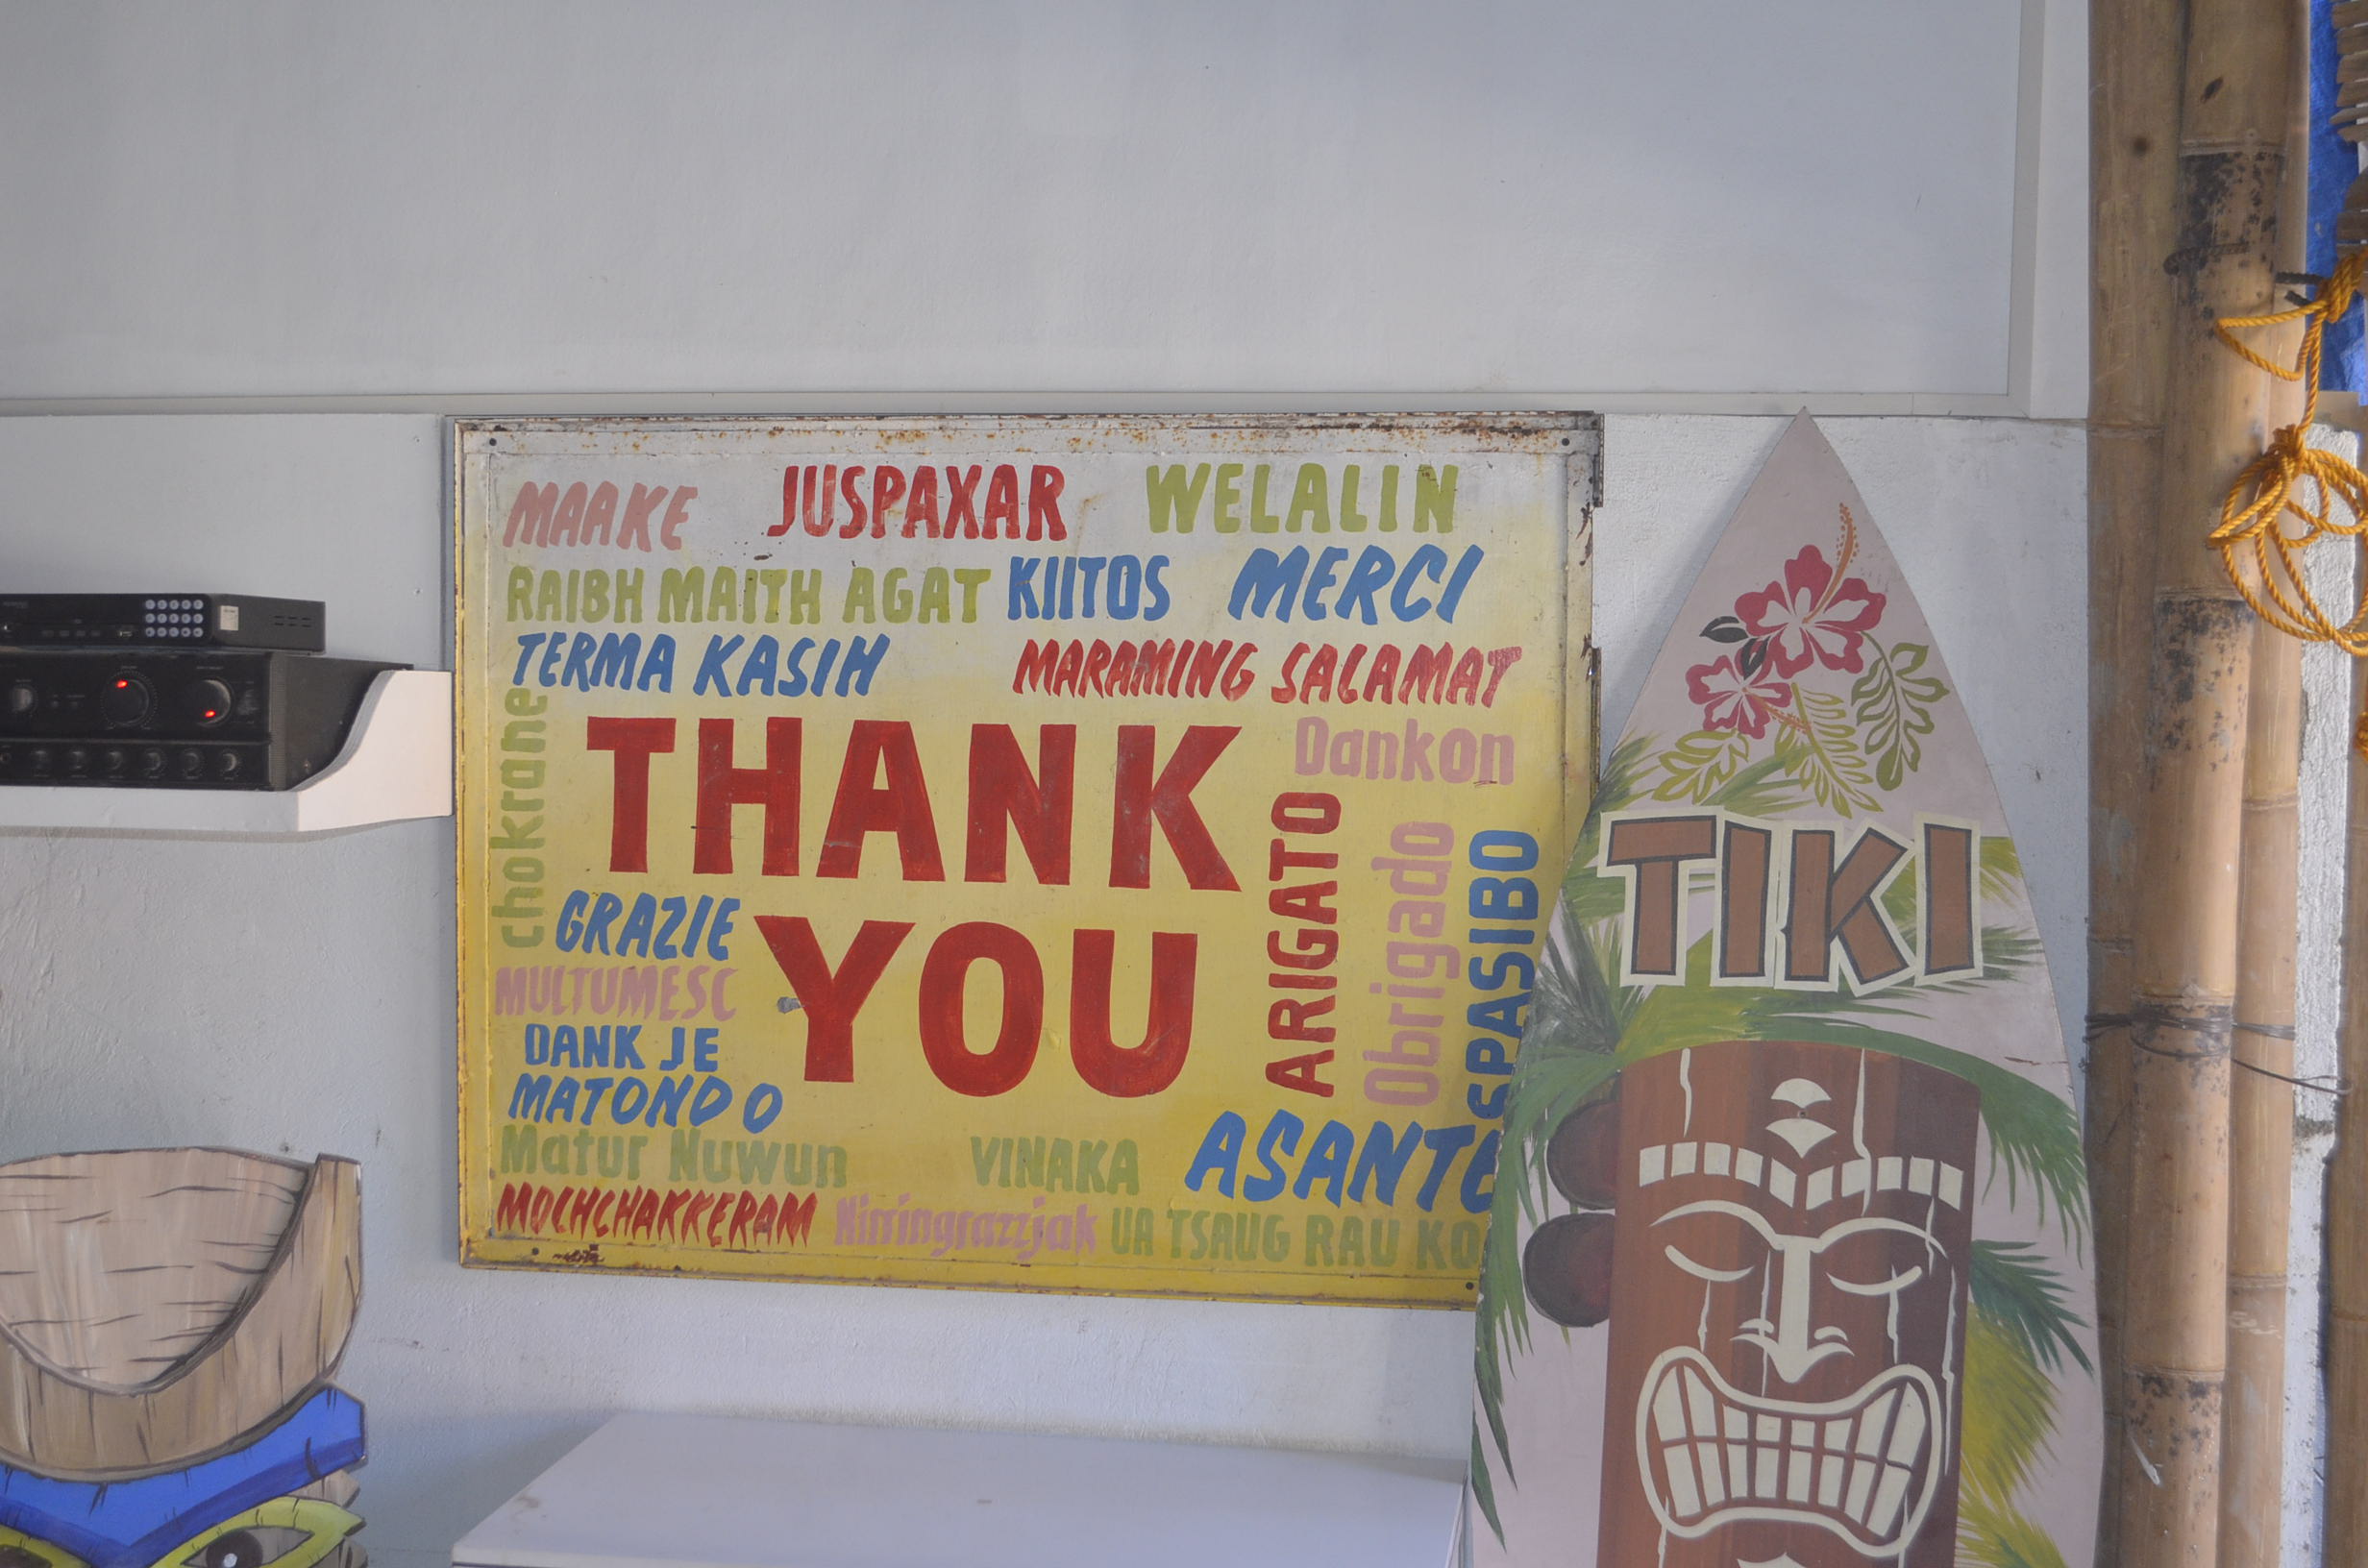 MAAKE JUSPAXAR WELALIN
RAIBH MAITH AGAT KIITOS MERCI
TERMA KASIH MARAMING SALAMAT
chokrane
THANK
YOU
Dankon
ARIGATO
Obrigado
SPASIBO
GRAZIE
MULTUMESC
DANK JE
MATONDO
Matur Nuwun VINAKA ASANTE
MOCHCHAKKERAM Niringrazzjak UA TSAUG RAU KO
TIKI